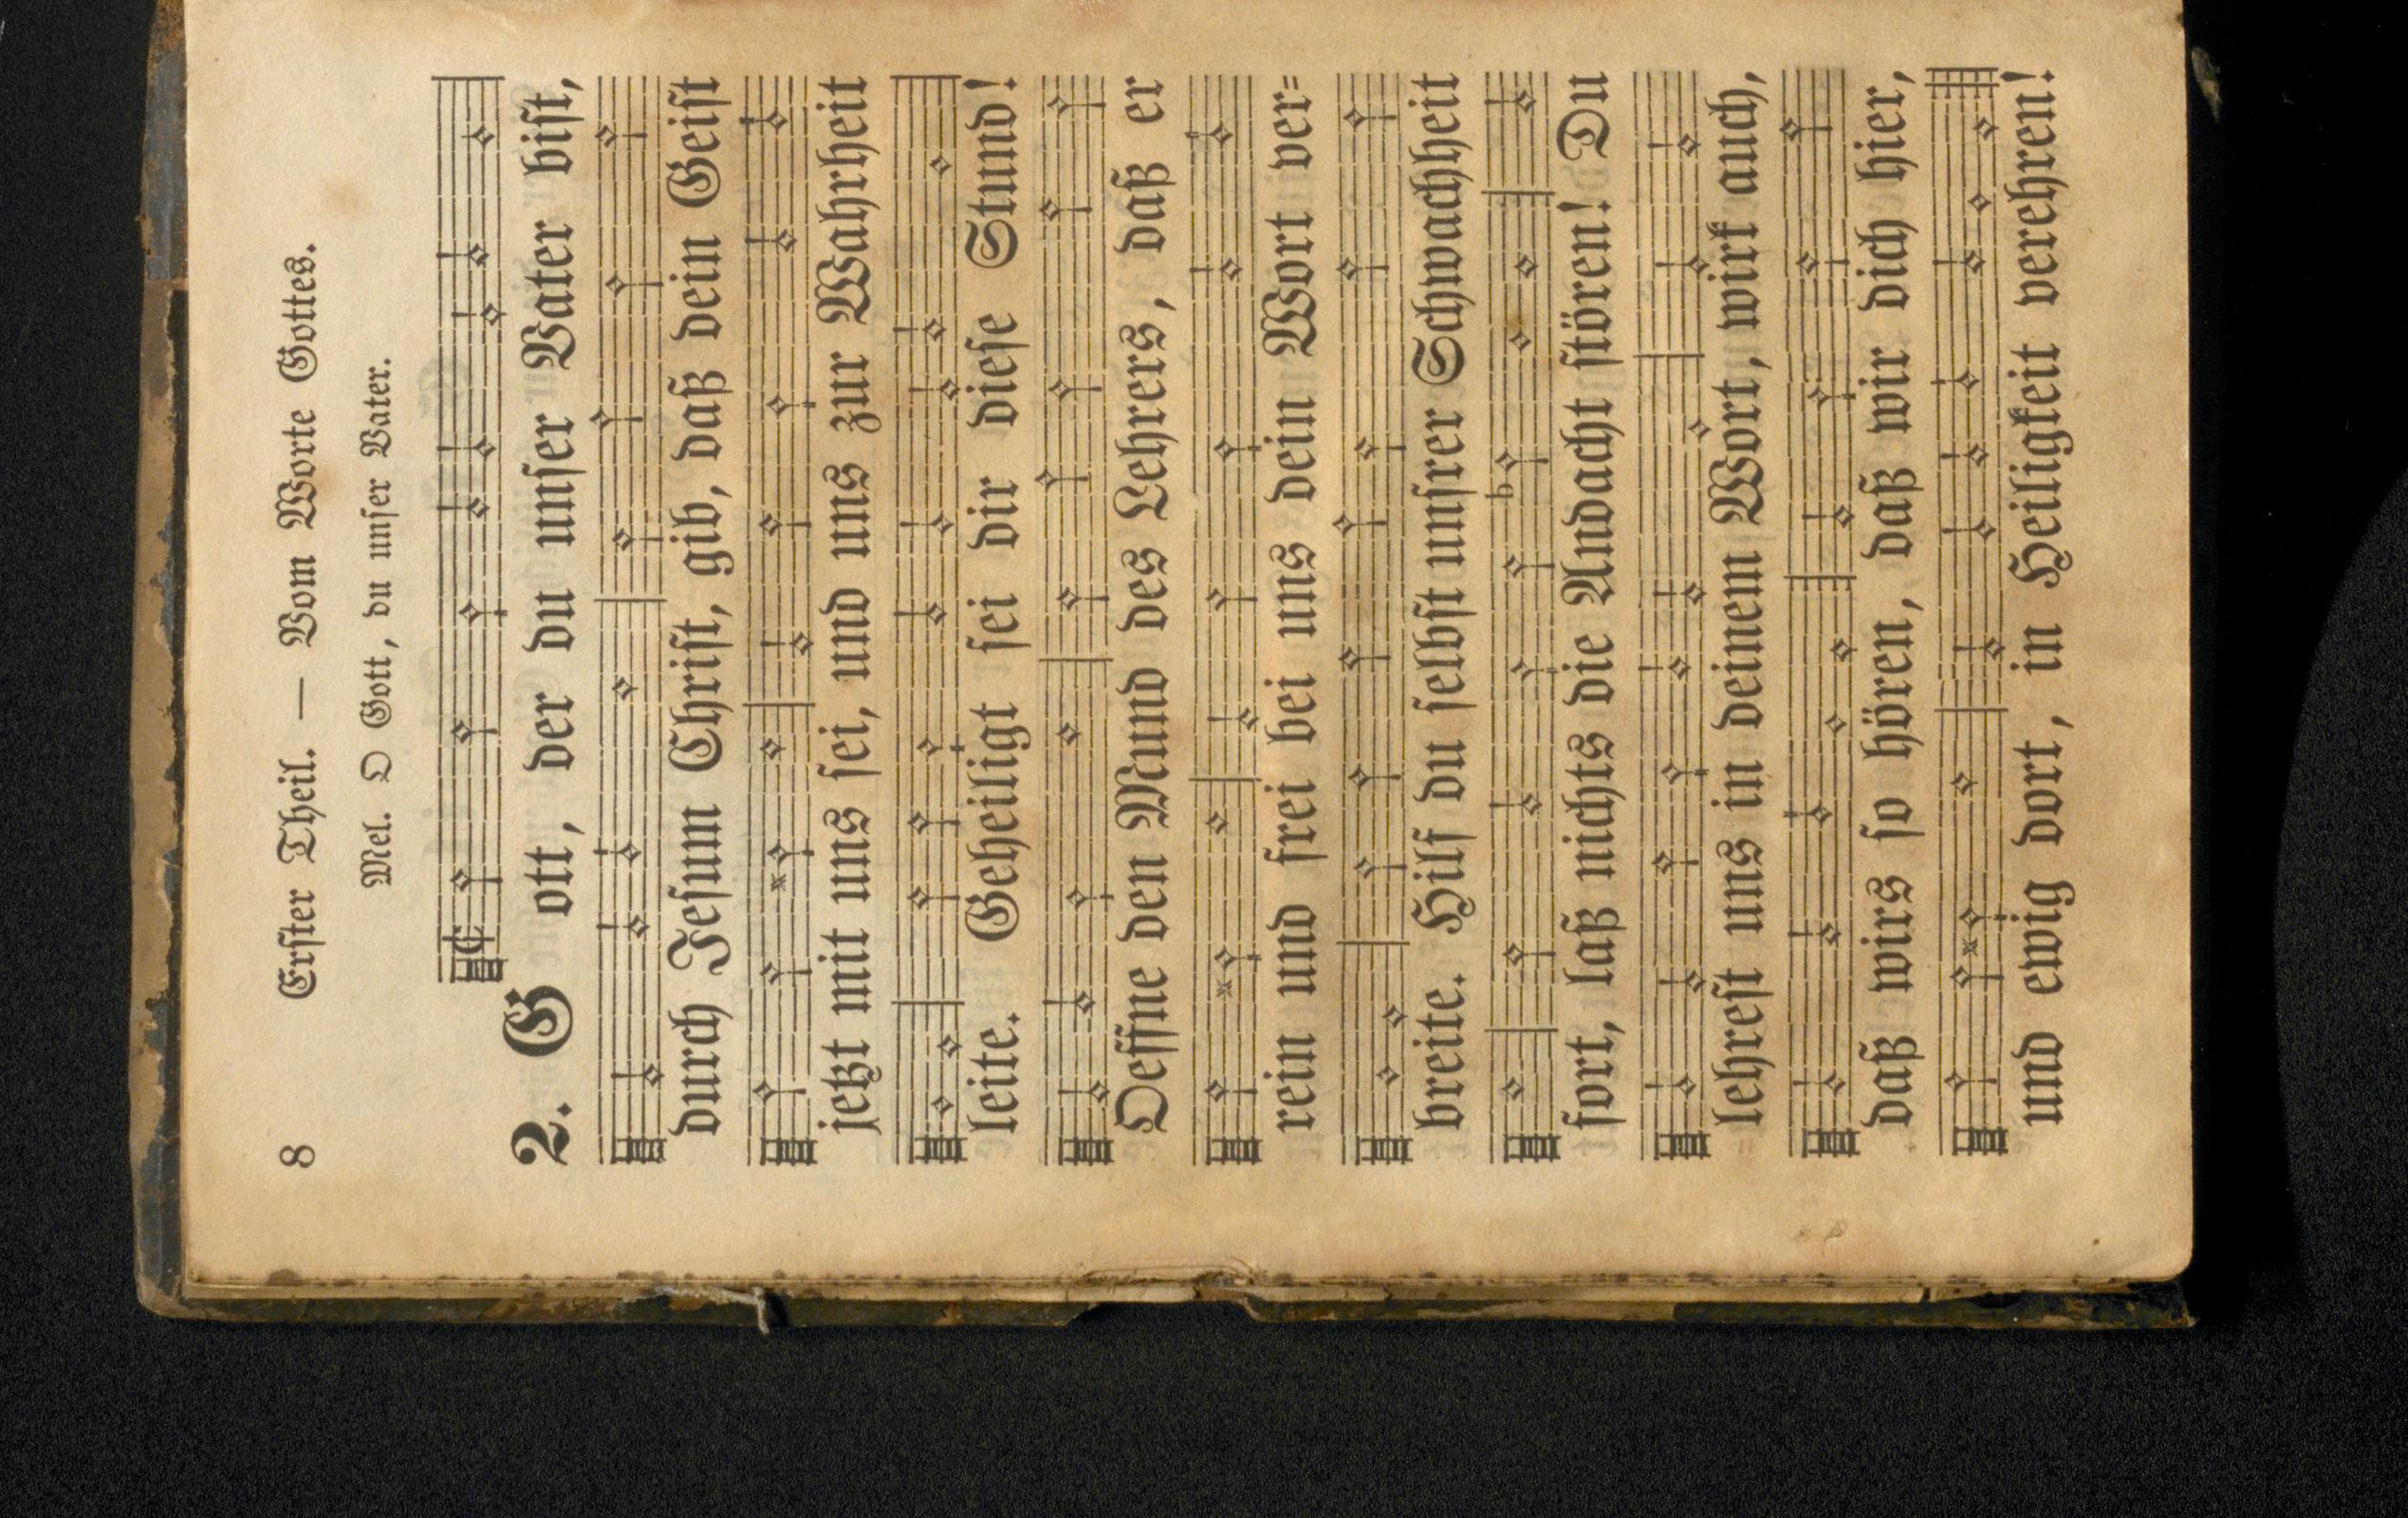 8 Erster Theil. — Vom Worte Gottes.
Mel. O Gott, du unser Vater.
2. Gott, der du unser Vater bist,
durch Jesum Christ, gib, daß dein Geist
jetzt mit uns sei, und uns zur Wahrheit
leite. Geheiligt sei dir diese Stund!
Oeffne den Mund des Lehrers, daß er
rein und frei bei uns dein Wort ver=
breite. Hilf du selbst unsrer Schwachheit
fort, laß nichts die Andacht stören! Du
lehrest uns in deinem Wort, wirk auch,
daß wirs so hören, daß wir dich hier,
und ewig dort, in Heiligkeit verehren!